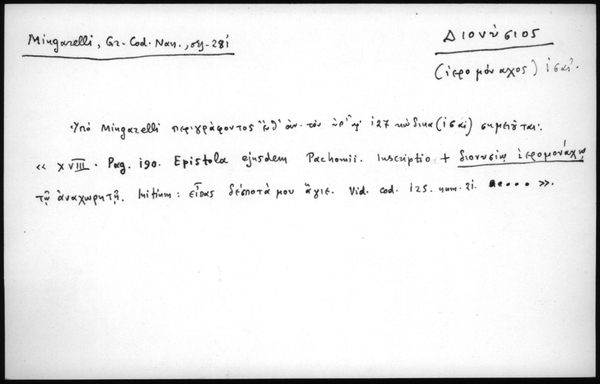 Mingarelli, Gr. Cod. Nan., σελ. 281
Διονύσιος
(ἱερομόναχος) ις αἰ.
Ὑπὸ Mingarelli περιγράφοντος ἔνθ' ἀν. τὸν ὑπ' ἀρ. 127 κώδικα (ις αἰ) σημειοῦται:
« XVIII. Pag. 190. Epistola ejusdem Pachomii. Inscriptio + διονυσίῳ ἱερομονάχῳ
τῷ ἀναχωρητῇ. Initium: εἶπας δέσποτά μου ἅγιε. Vid. cod. 125. num. 21. .... ».